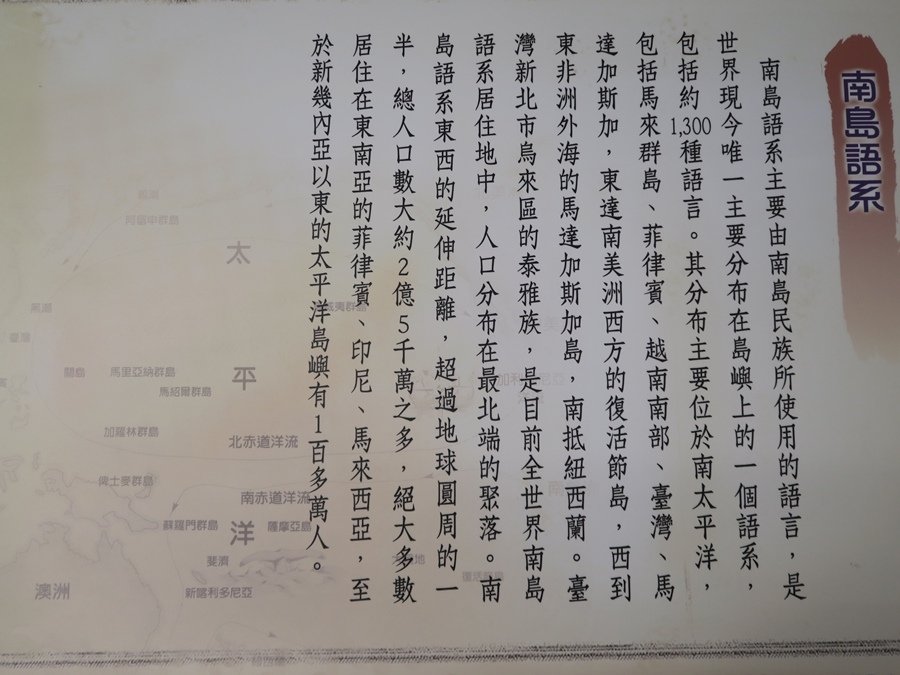 南島語系
南島語系主要由南島民族所使用的語言，是
世界現今唯一主要分布在島嶼上的一個語系，
包括約1,300種語言。其分布主要位於南太平洋，
包括馬來群島、菲律賓、越南南部、臺灣、馬
達加斯加，東達南美洲西方的復活節島，西到
東非洲外海的馬達加斯加島，南抵紐西蘭。臺
灣新北市烏來區的泰雅族，是目前全世界南島
語系居住地中，人口分布在最北端的聚落。南
島語系東西的延伸距離，超過地球圓周的一
半，總人口數大約2億5千萬之多，絕大多數
居住在東南亞的菲律賓、印尼、馬來西亞，至
於新幾內亞以東的太平洋島嶼有1百多萬人。
太平洋
關島
馬里亞納群島
馬紹爾群島
加羅林群島
北赤道洋流
俾士麥群島
南赤道洋流
蘇羅門群島
薩摩亞島
斐濟
新喀利多尼亞
澳洲